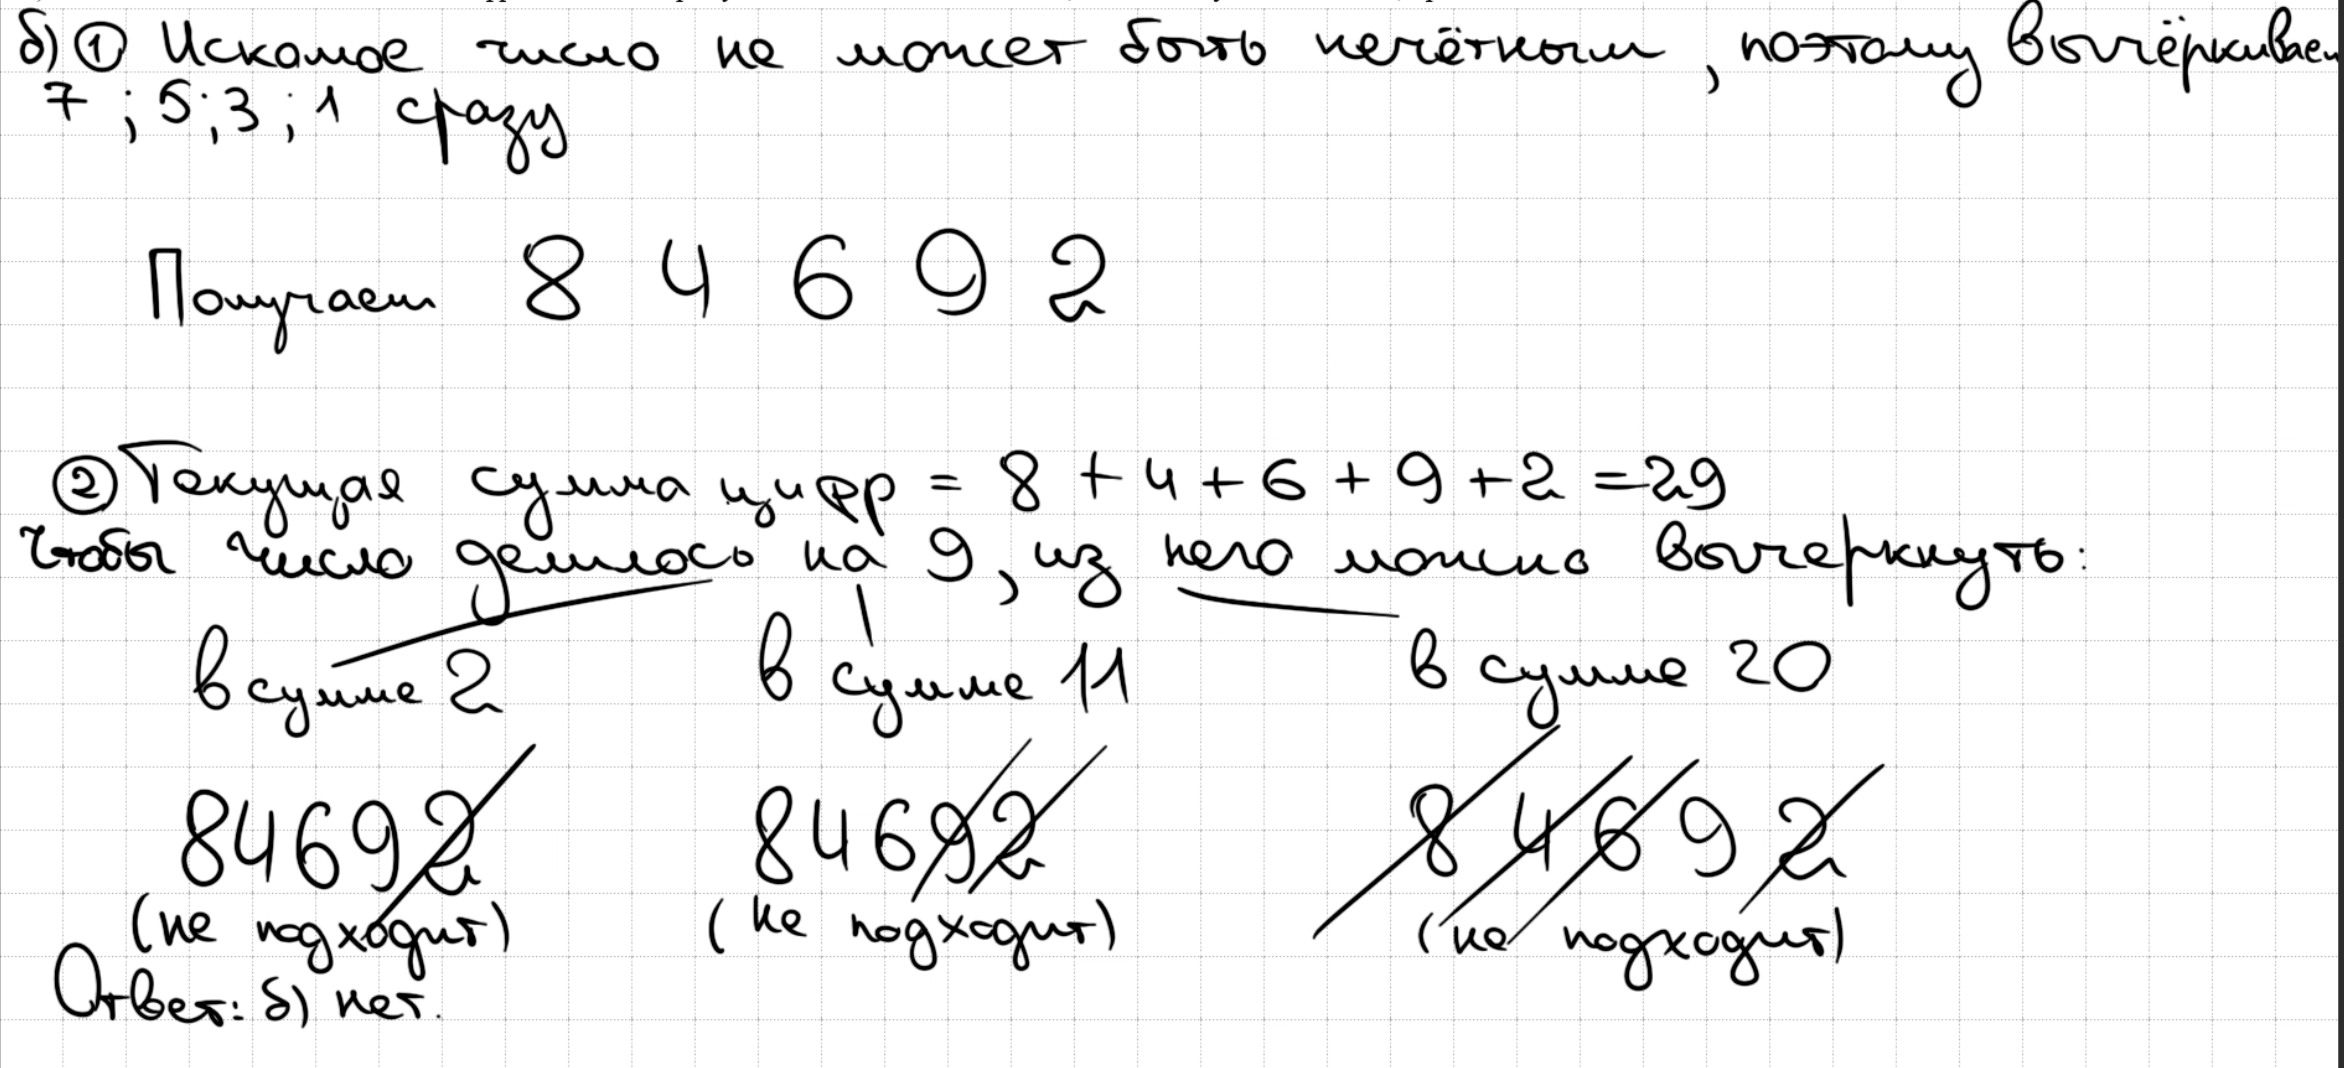 б) ① Искомое число не может быть нечётным, поэтому вычёркиваем
7; 5; 3; 1 сразу
Получаем 8 4 6 9 2
② Текущая сумма цифр = 8 + 4 + 6 + 9 + 2 = 29
Чтобы число делилось на 9, из него можно вычеркнуть:
в сумме 2 в сумме 11 в сумме 20
84692 84692 84692
(не подходит) (не подходит) (не подходит)
Ответ: б) нет.